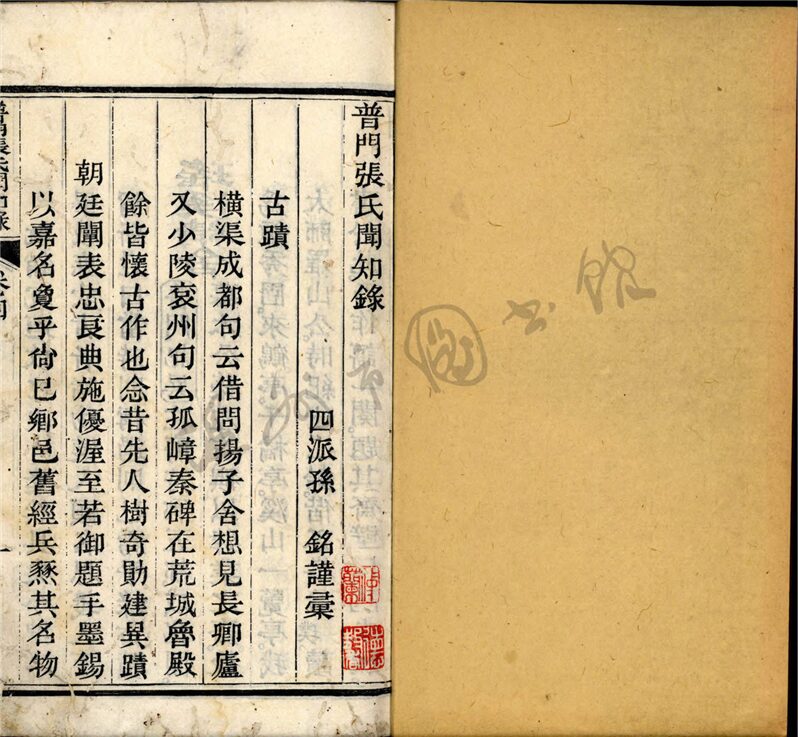 普門張氏聞知錄
四派孫 銘謹彙
古蹟
橫渠成都句云借問揚子舍想見長卿廬
又少陵兗州句云孤嶂秦碑在荒城魯殿
餘皆懷古作也念昔先人樹奇勛建異蹟
朝廷闡表忠良典施優渥至若御題手墨錫
以嘉名敻乎尙已鄉邑舊經兵燹其名物
普門張氏聞知錄
卷四
一
圖書館